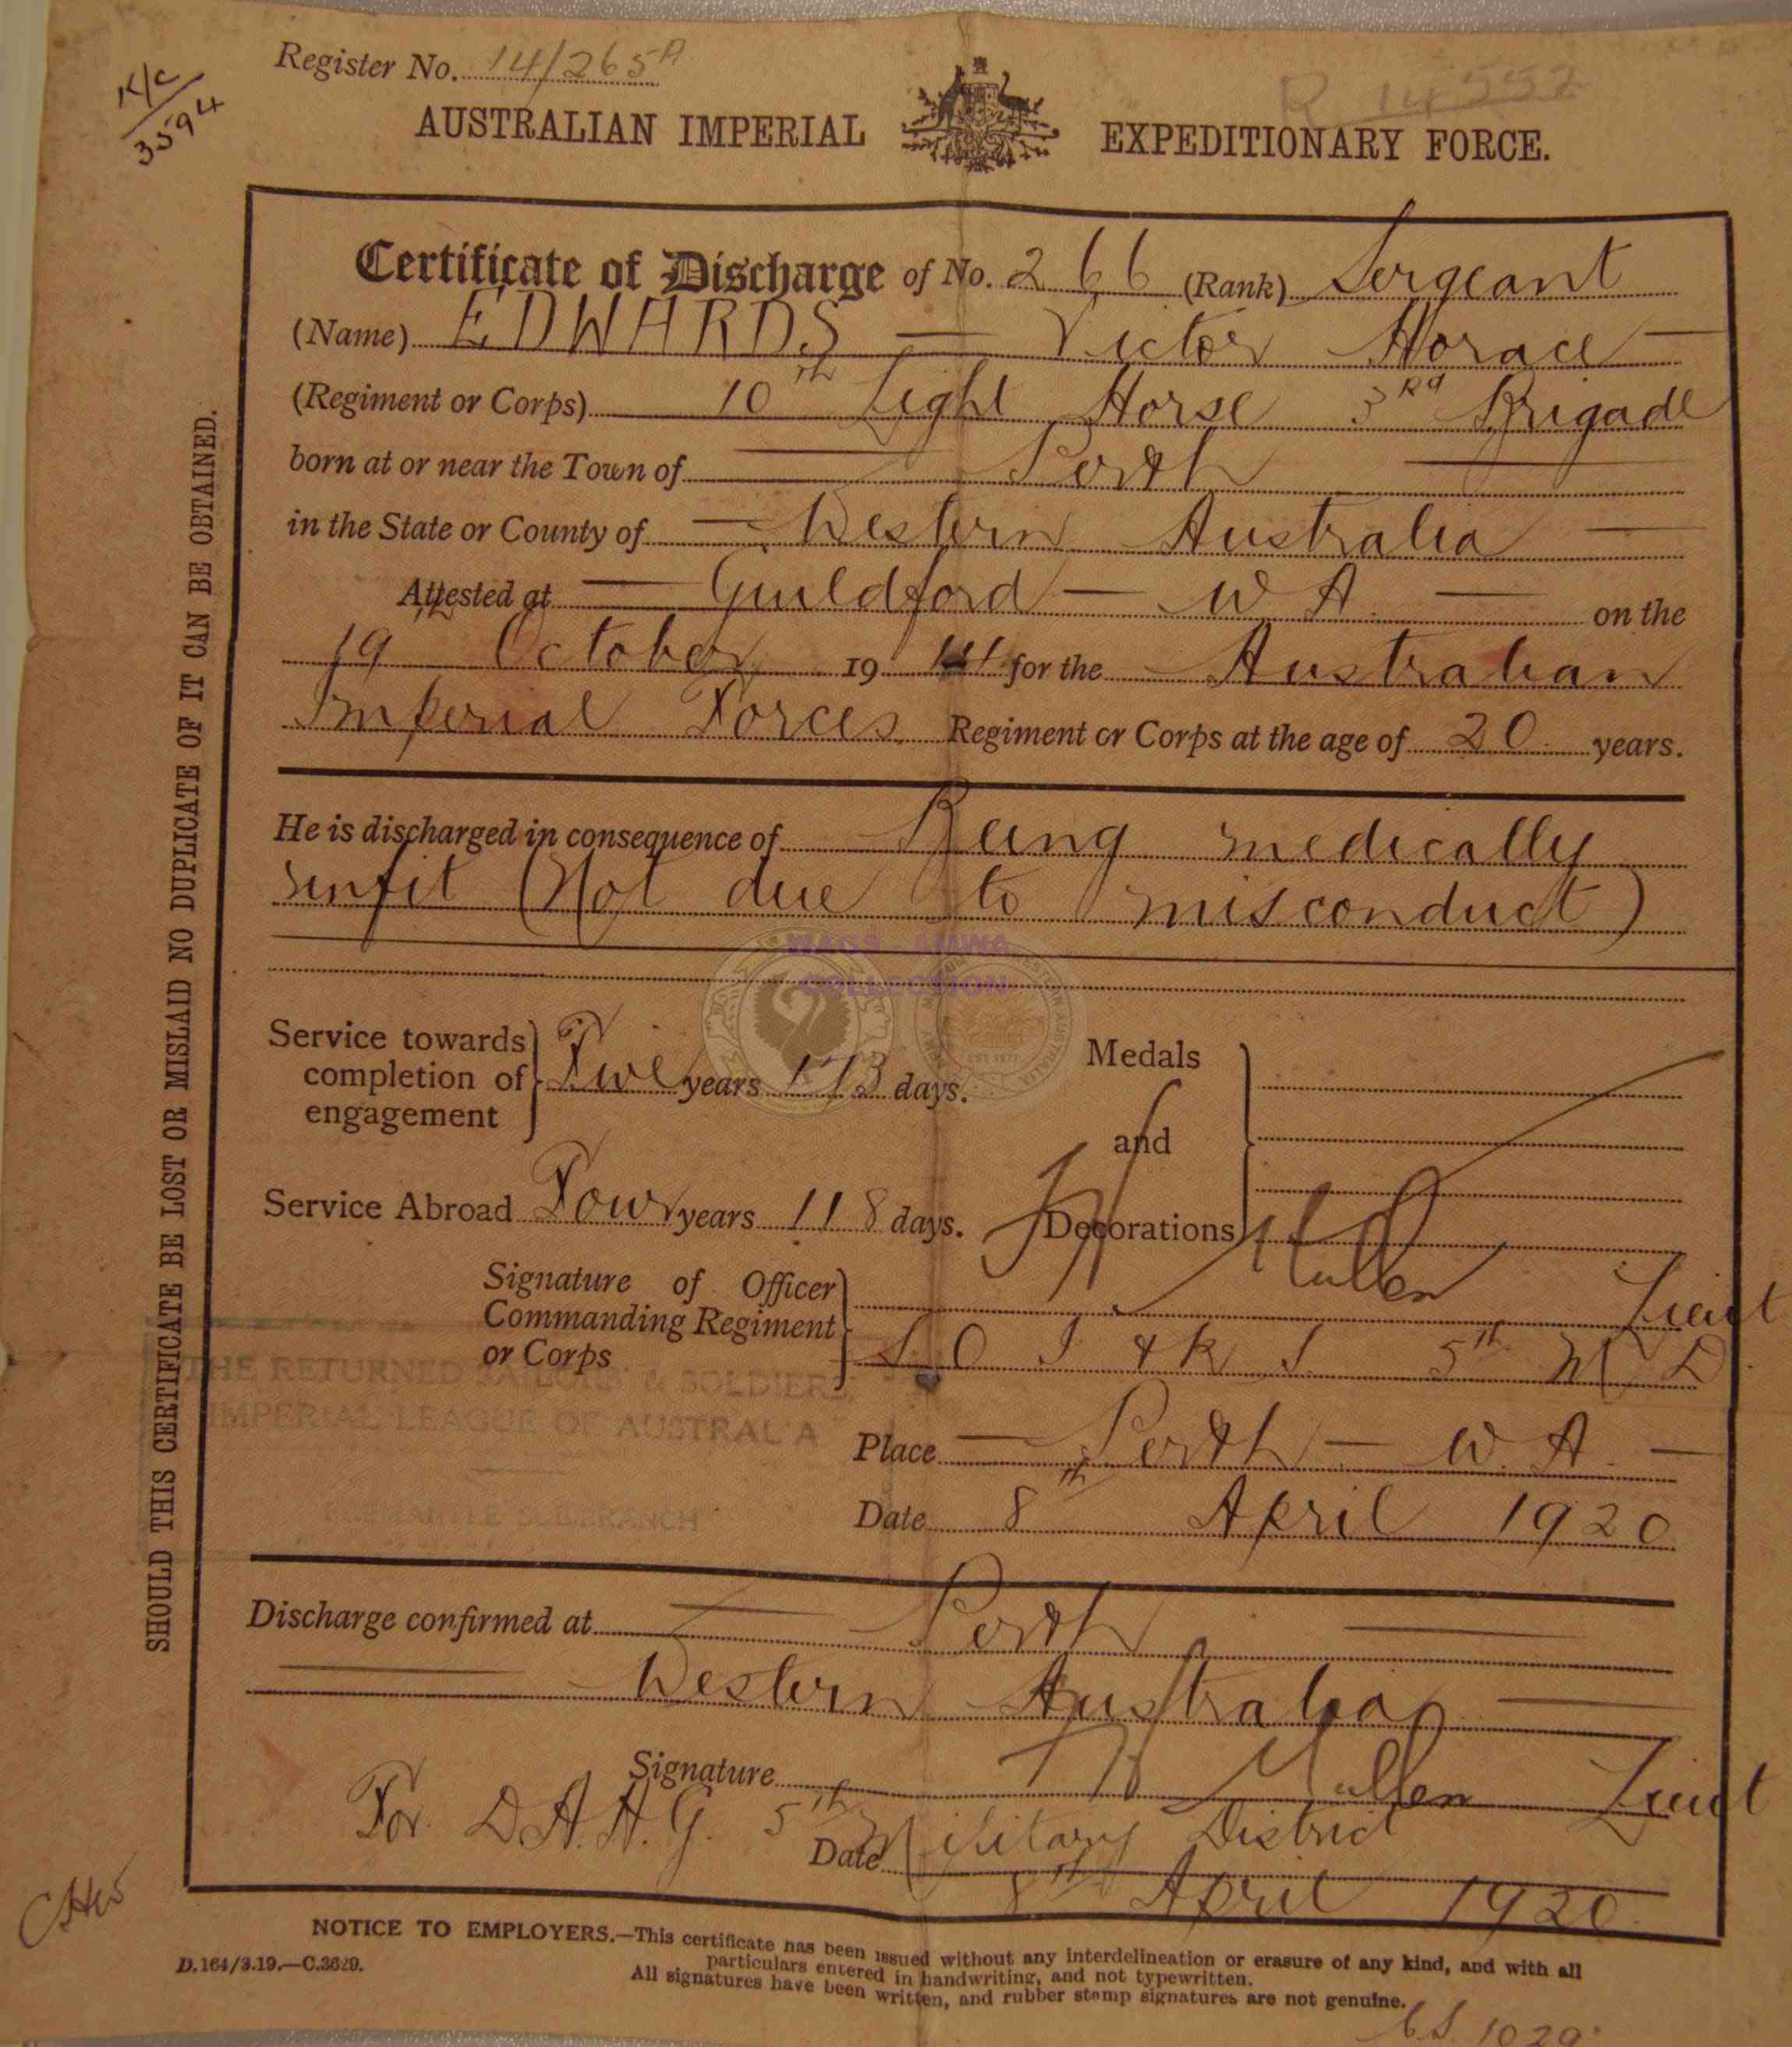 K/c
3594
Register No. 14/265A
R 14552
AUSTRALIAN IMPERIAL EXPEDITIONARY FORCE.
Certificate of Discharge of No. 266 (Rank) Sergeant
(Name) EDWARDS — Victor Horace —
(Regiment or Corps) 10th Light Horse 3rd Brigade
born at or near the Town of — Perth —
in the State or County of — Western Australia —
Attested at — Guildford — W. A. — on the
19th October 19 14 for the Australian
Imperial Forces Regiment or Corps at the age of 20 years.
He is discharged in consequence of Being medically
unfit (Not due to misconduct)
WAGS AIMWA
COLLECTION
Service towards completion of engagement } Five years 173 days.
Medals and Decorations }
Service Abroad Four years 118 days.
Signature of Officer Commanding Regiment or Corps } Mullen Lieut
S O I & R S 5th M D
THE RETURNED SAILORS' & SOLDIERS
IMPERIAL LEAGUE OF AUSTRALIA
FREMANTLE SUB-BRANCH
Place — Perth — W. A. —
Date 8th April 1920
Discharge confirmed at — Perth —
— Western Australia —
Signature Mullen Lieut
For D.A.A.G. 5th Military District
Date 8th April 1920
NOTICE TO EMPLOYERS.—This certificate has been issued without any interdelineation or erasure of any kind, and with all
particulars entered in handwriting, and not typewritten.
All signatures have been written, and rubber stamp signatures are not genuine.
D.164/3.19.—C.3629.
1029
SHOULD THIS CERTIFICATE BE LOST OR MISLAID NO DUPLICATE OF IT CAN BE OBTAINED.